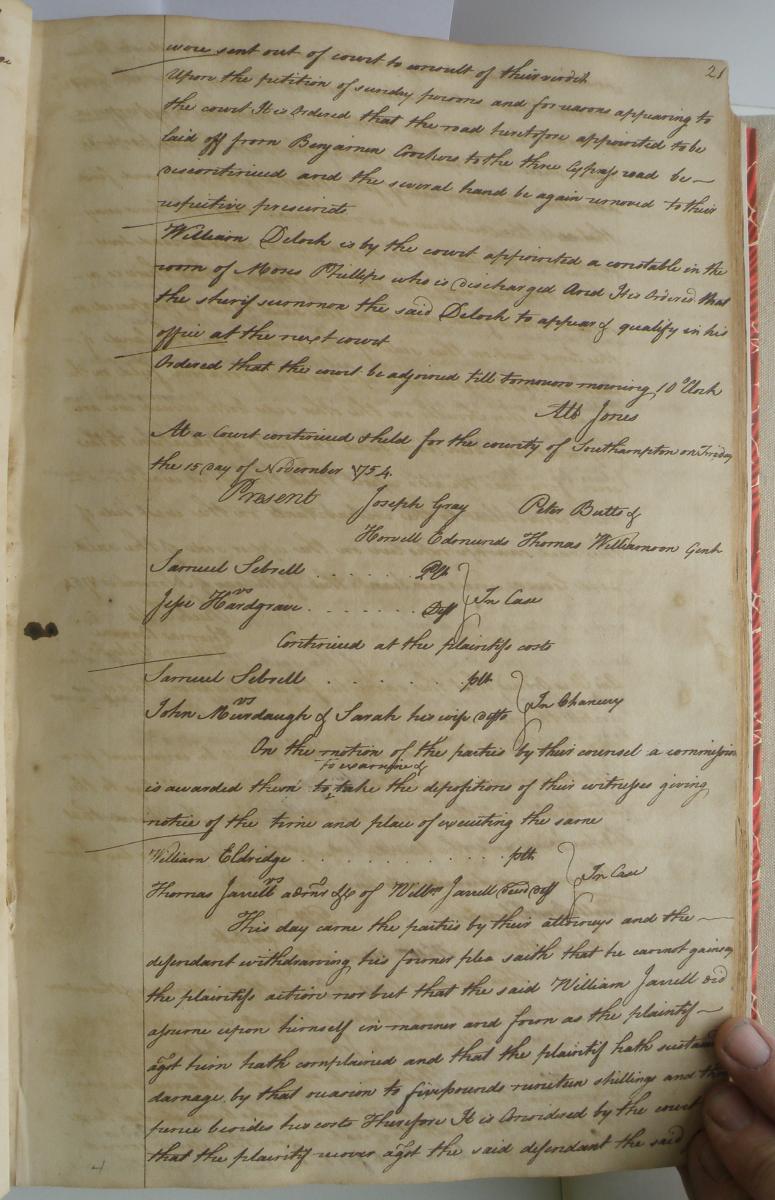 21
were sent out of court to consult of their verdict
Upon the petition of sunday persons and for reasons appearing to
the court It is Ordered that the road heretofore appointed to be
laid off from Benjamin Crockers to the thre Cypress road be
discontinued and the several hand be again removed to their
respective presincts
William Deloch is by the court appointed a constable in the
room of Moses Phillips who is discharged And It is Ordered that
the sherif summon the said Deloch to appear & qualify in his
office at the next court
Ordered that the court be adjorned till tomorrow morning 10 oClock
Alb Jones
At a Court continued & held for the county of Southampton on Friday
the 15 Day of November 1754.
Present Joseph Gray Peter Butts &
Howell Edmunds Thomas Williamson Gent
Samuel Sebrell . . . . . . Plt
vs In Case
Jesse Hardgrave . . . . . . Deft
Continued at the plaintifs costs
Samuel Sebrell . . . . . plt
vs In Chancery
John Murdaugh & Sarah his wife Defts
On the motion of the parties by their counsel a commission
to examine &
is awarded them to take the depositions of their witnesses giving
notice of the time and place of executing the same
William Eldridge . . . . . . . . . plt
vs In Case
Thomas Jarrell admr &c of Willm Jarrell Decd Deft
This day came the parties by their attorneys and the
defendant withdrawing his former plea saith that he cannot gainsay
the plaintifs action nor but that the said William Jarrell did
assume upon himself in manner and form as the plaintif
agst him hath complained and that the plaintif hath
damage by that occasion to five pounds nineteen shillings and
pence besides his costs Therefore It is Considered by the court
that the plaintif recover agst the said defendant the said